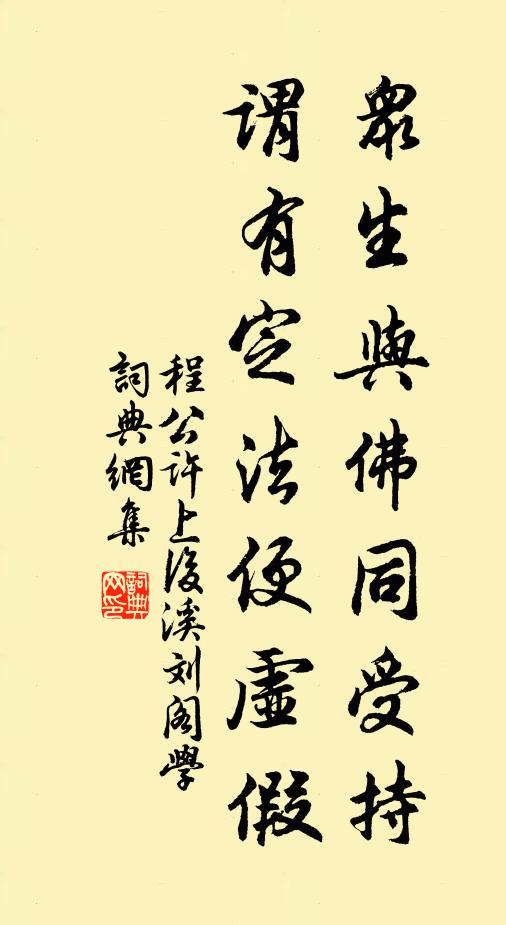 眾生與佛同受持
謂有定法便虛假
程公許上後溪刘阁學
詞典網集
詞典
网印